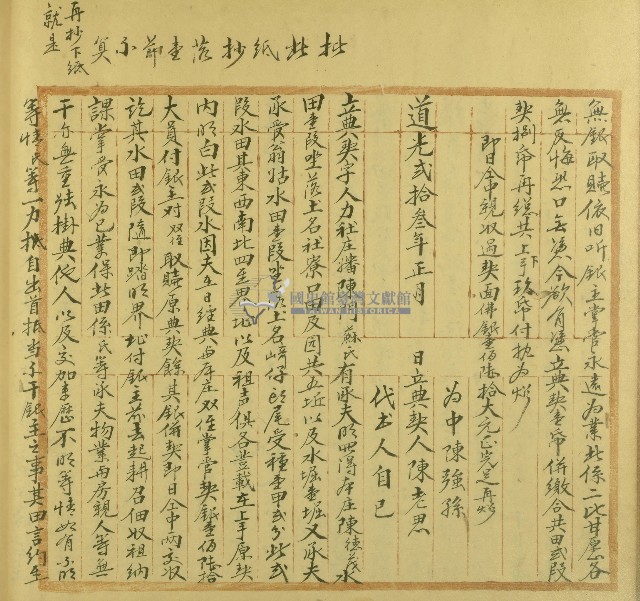 批此紙抄落壹節不算
再抄下紙
就是
無銀取贖依旧听銀主掌管永遠為業此係二比甘愿各
無反悔恐口無憑今欲有憑立典契壹帋併繳合共田貳段
契捌帋再繳共上下手玖帋付执為炤
即日全中親收過契面佛銀壹佰陸拾大元正完足再炤
道光貳拾叁年正月 日立典契人陳老思
為中陳強孫
代书人自己
立典契字人力社庄潘陳開蘇氏有承夫明買得本庄陳德茂水
田壹段坐落土名社寮口田及园共五坵以及水堀壹堀又承夫
承受翁姑水田壹段坐落土名崎仔頭尾受種壹甲貳分此貳
段水田其東西南北四至界址以及租声俱各登載在上手原契
內明白此貳段水因夫在日經典与本庄双任掌管契銀壹佰陸拾
大員付銀主对双任取贖原典契餘其銀併契即日仝中兩交收
訖其水田貳段隨即踏明界址付銀主前去起耕召佃收租納
課掌管永為己業保此田係氏等承夫物業与房親人等無
干亦無重張掛典他人以及交加來歷不明等情如有不明
等情氏等一力抵自出首抵当不干銀主之事其田言約至
國史館臺灣文獻館
TAIWAN HISTORICA